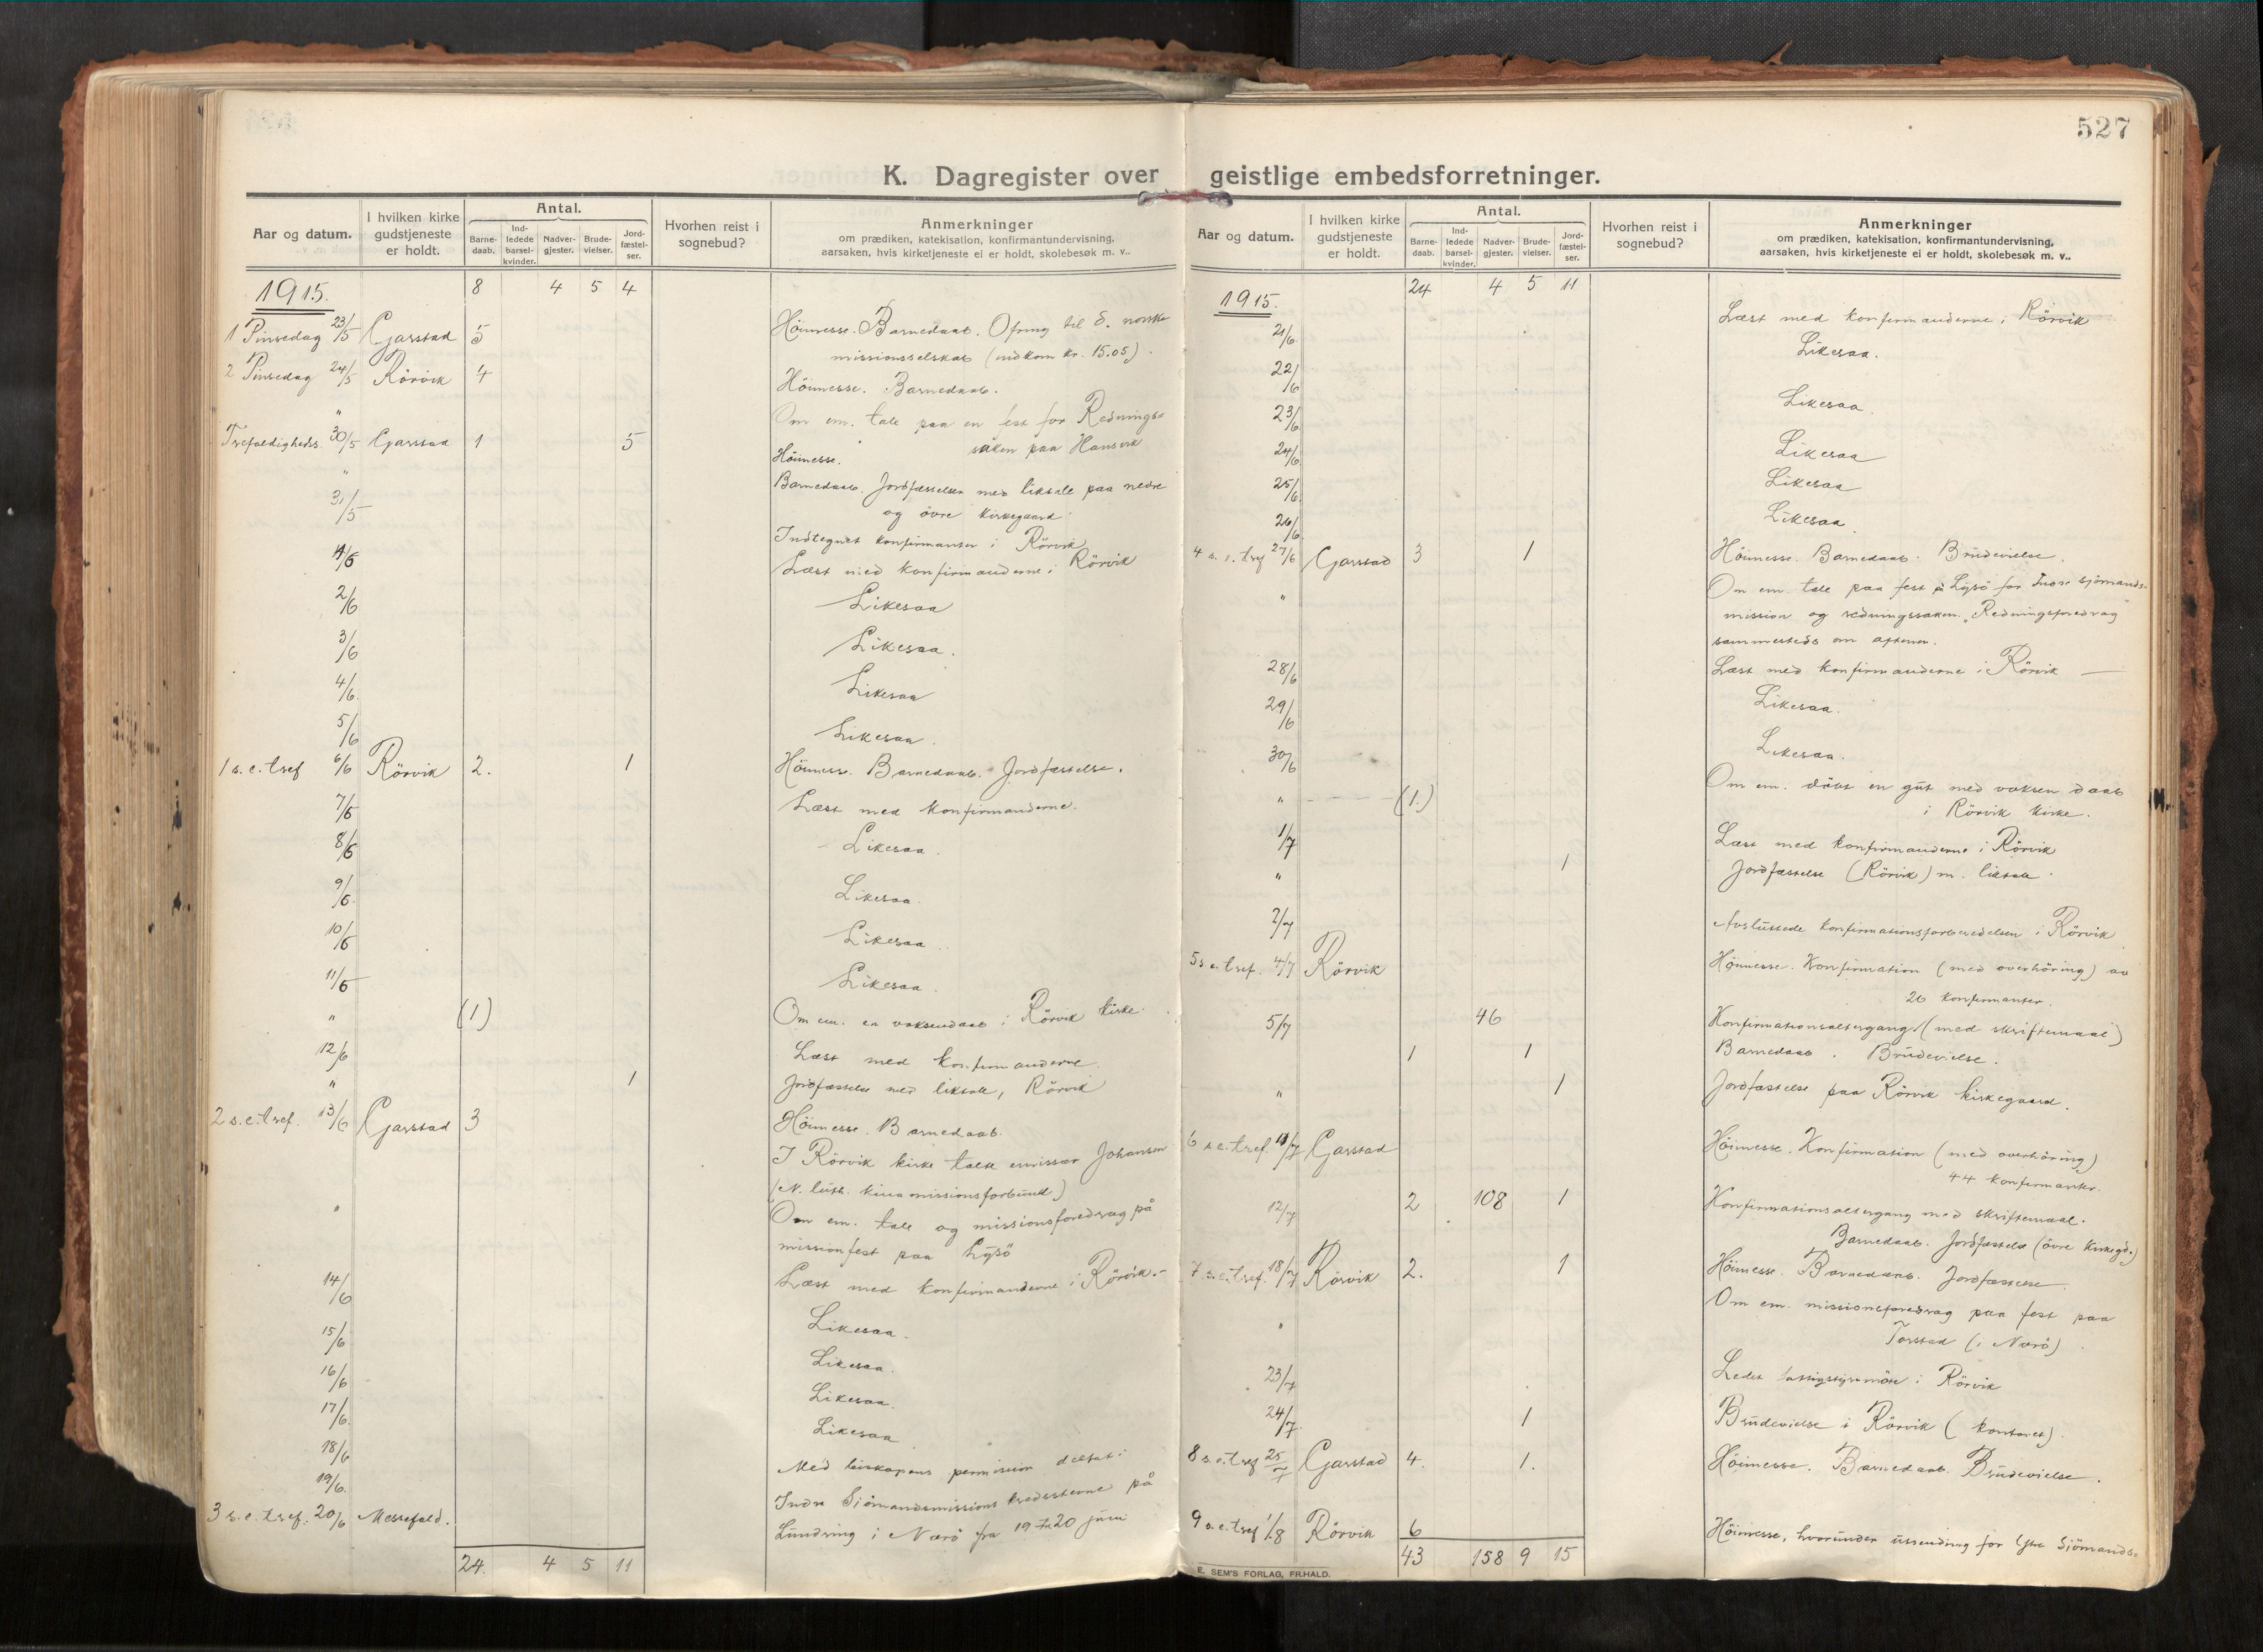 527
K. Dagregister over geistlige embedsforretninger.
Aar og datum.
I hvilken kirke gudstjeneste er holdt.
Antal.
Barne-daab.
Ind-ledede barsel-kvinder.
Nadver-gjester.
Brude-vielser.
Jord-fæstel-ser.
Hvorhen reist i sognebud?
Anmerkninger
om prædiken, katekisation, konfirmantundervisning,
aarsaken, hvis kirketjeneste ei er holdt, skolebesøk m. v..
1915. 8 4 5 4
1 Pinsedag 23/5 Garstad 5 Höimesse. Barnedaab. Ofring til d. norske
missionsselskab (indkom kr. 15.05).
2 Pinsedag 24/5 Rörvik 4 Höimesse. Barnedaab.
" Om em. tale paa en fest for Rednings=
saken paa Hansvik
Trefoldigheds. 30/5 Garstad 1 5 Höimesse.
" Barnedaab. Jordfæstelser med liktale paa nedre
og övre kirkegaard
31/5 Indtegnet konfirmanter i Rörvik
1/6 Læst med konfirmanderne i Rörvik
2/6 Likesaa
3/6 Likesaa.
4/6. Likesaa
5/6 Likesaa.
1 s. e. tref 6/6 Rörvik 2. 1 Höimesse. Barnedaab. Jordfæstelse.
7/6 Læst med konfirmanderne.
8/6 Likesaa.
9/6. Likesaa.
10/6 Likesaa.
11/6 Likesaa.
" (1) Om em. en voksendaab i Rörvik kirke.
12/6 Læst med konfirmanderne
" 1 Jordfæstelse med liktale, Rörvik
2 s. e. tref. 13/6 Garstad 3 Höimesse. Barnedaab.
I Rörvik kirke talte emissær Johansen
(N. luth. kina missionsforbund)
" Om em. tale og missionsforedrag på
missionfest paa Lysö
14/6 Læst med konfirmanderne i Rörvik.
15/6 Likesaa.
16/6 Likesaa.
17/6. Likesaa.
18/6 Likesaa
19/6. Med biskopens permission deltat i
Indre Sjömandsmissions kredsstevne på
3 s. e. tref. 20/6 Messefald. Lundring i Nærö fra 19 til 20 juni
24. 4 5 11
Aar og datum.
I hvilken kirke gudstjeneste er holdt.
Antal.
Barne-daab.
Ind-ledede barsel-kvinder.
Nadver-gjester.
Brude-vielser.
Jord-fæstel-ser.
Hvorhen reist i sognebud?
Anmerkninger
om prædiken, katekisation, konfirmantundervisning,
aarsaken, hvis kirketjeneste ei er holdt, skolebesøk m. v..
1915. 24 4 5 11
21/6. Læst med konfirmanderne i Rörvik
22/6 Likesaa.
23/6 Likesaa.
24/6. Likesaa
25/6. Likesaa
26/6 Likesaa.
4 s. e. tref 27/6 Garstad 3 1 Höimesse. Barnedaab. Brudevielse.
" Om em. tale paa fest på Lysö for Indre Sjömands=
mission og redningssaken. Redningsforedrag
sammesteds om aftenen.
28/6 Læst med konfirmanderne i Rörvik
29/6 Likesaa.
30/6 Likesaa.
" (1.) Om em. döbt en gut med voksen daab
i Rörvik kirke.
1/7 Læst med konfirmanderne i Rörvik
" 1 Jordfæstelse (Rörvik) m. liktale.
2/7 Avsluttede konfirmationsforberedelsen i Rörvik
5 s. e. tref. 4/7 Rörvik Höimesse. Konfirmation (med overhöring) av
26 konfirmanter.
5/7 46 Konfirmationsaltergang (med skriftemaal)
1 1 Barnedaab. Brudevielse.
" 1 Jordfæstelse paa Rörvik kirkegaard.
6 s. e. tref 11/7 Garstad Höimesse. Konfirmation (med overhöring)
44 konfirmanter.
12/7 2 108 1 Konfirmationsaltergang med skriftemaal.
Barnedaab. Jordfæstelse (övre Kirkegd.)
7 s. e. tref. 18/7 Rörvik 2. 1 Höimesse. Barnedaab. Jordfæstelse
" Om em. missionsforedrag paa fest paa
Torstad (i Nærö)
23/7 Ledet fattigstyremöte i Rörvik
24/7 1 Brudevielse i Rörvik (kontoret).
8 s. e. tref 25/7 Garstad 4. 1. Höimesse. Barnedaab. Brudevielse.
9 s. e. tref 1/8 Rörvik 6 Höimesse, hvorunder utsending for Ytre Sjömands=
43 158 9 15
E. SEM'S FORLAG, FR.HALD.